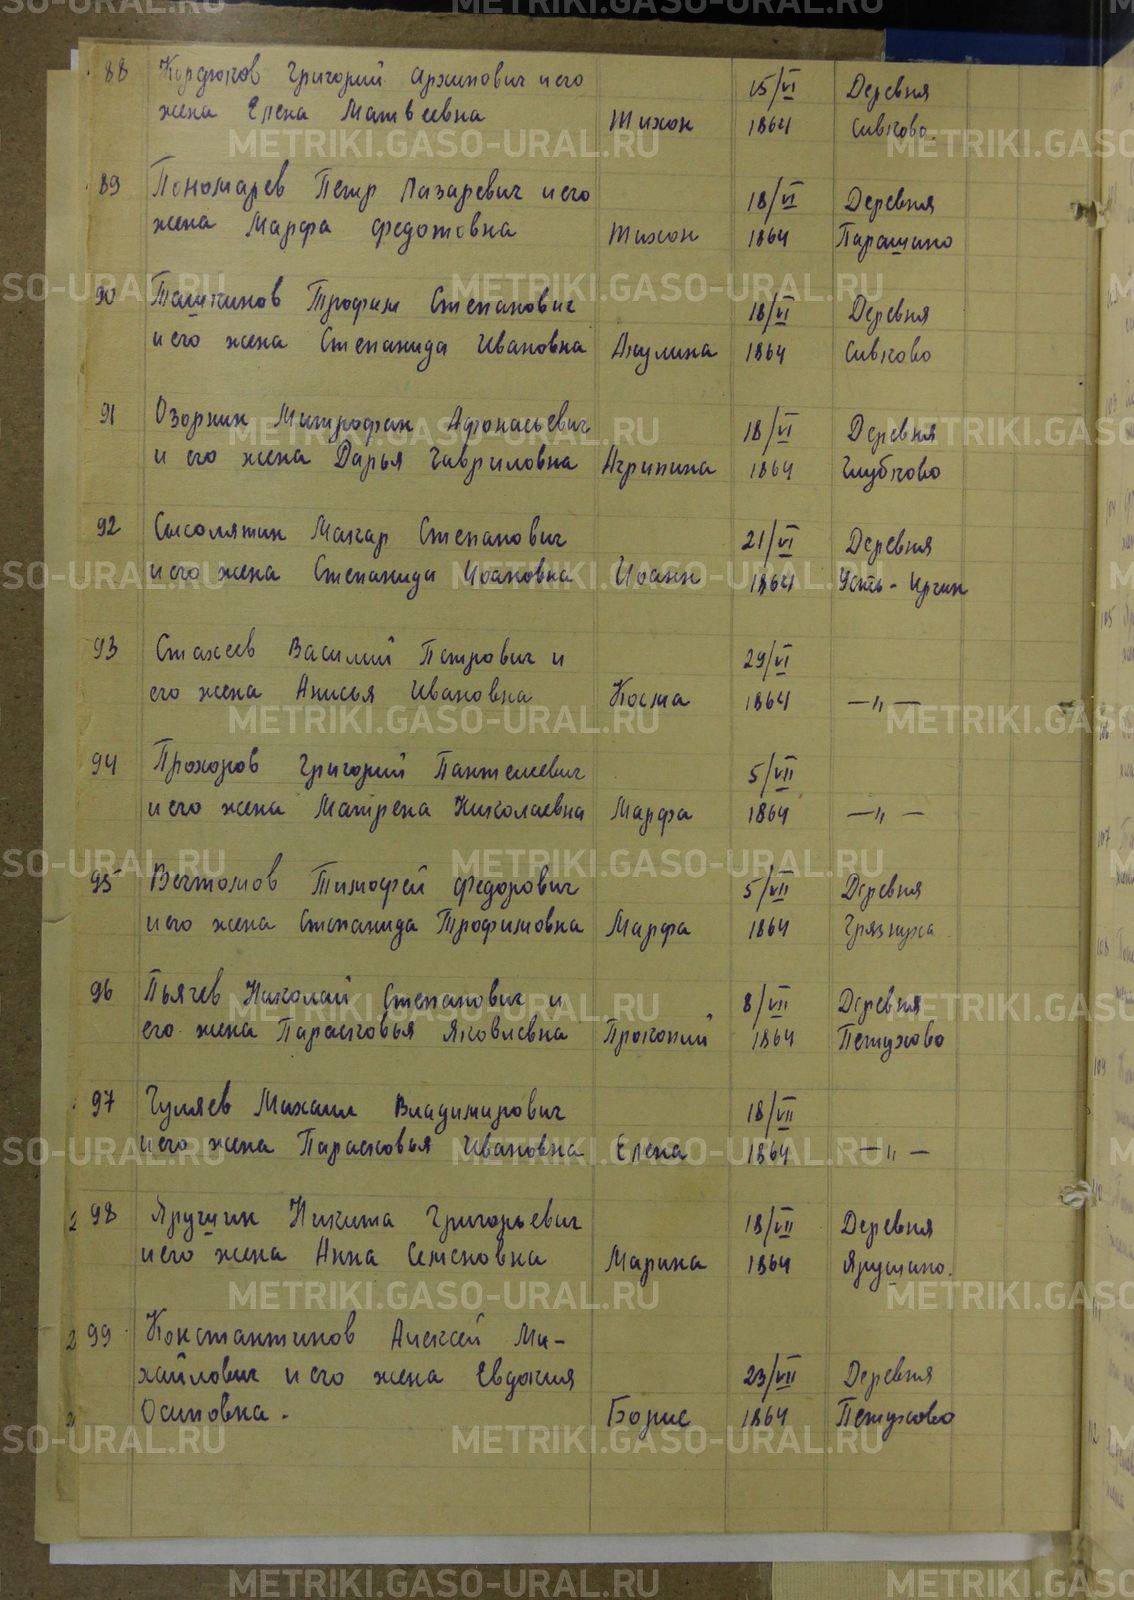 88 Кордюков Григорий Архипович и его 15/VI Деревня
жена Елена Матвеевна Тихон 1864 Сивково.
89 Пономарев Петр Лазаревич и его 18/VI Деревня
жена Марфа Федотовна Тихон 1864 Парашино
90 Ташкинов Трофим Степанович 18/VI Деревня
и его жена Степанида Ивановна Акулина 1864 Сивково
91 Озорнин Митрофан Афонасьевич 18/VI Деревня
и его жена Дарья Гавриловна Агрипина 1864 Глубково
92 Сысолятин Макар Степанович 21/VI Деревня
и его жена Степанида Иоановна Иоанн 1864 Усть-Иргин
93 Стахеев Василий Петрович и 29/VI
его жена Анисья Ивановна Косма 1864 —"—
94 Прохоров Григорий Пантелеевич 5/VII
и его жена Матрена Николаевна Марфа 1864 —"—
95 Вечтомов Тимофей Федорович 5/VII Деревня
и его жена Степанида Трофимовна Марфа 1864 Грязнуха
96 Пьячев Николай Степанович и 8/VII Деревня
его жена Парасковья Яковлевна Прокопий 1864 Петухово
97 Гуляев Михаил Владимирович 18/VII
и его жена Парасковья Ивановна Елена 1864 —"—
2 98 Яругшин Никита Григорьевич 18/VII Деревня
и его жена Анна Семеновна Марина 1864 Ярушино.
2 99 Константинов Алексей Ми- 
хайлович и его жена Евдокия 23/VII Деревня
Осиповна. Борис 1864 Петухово
METRIKI.GASO-URAL.RU